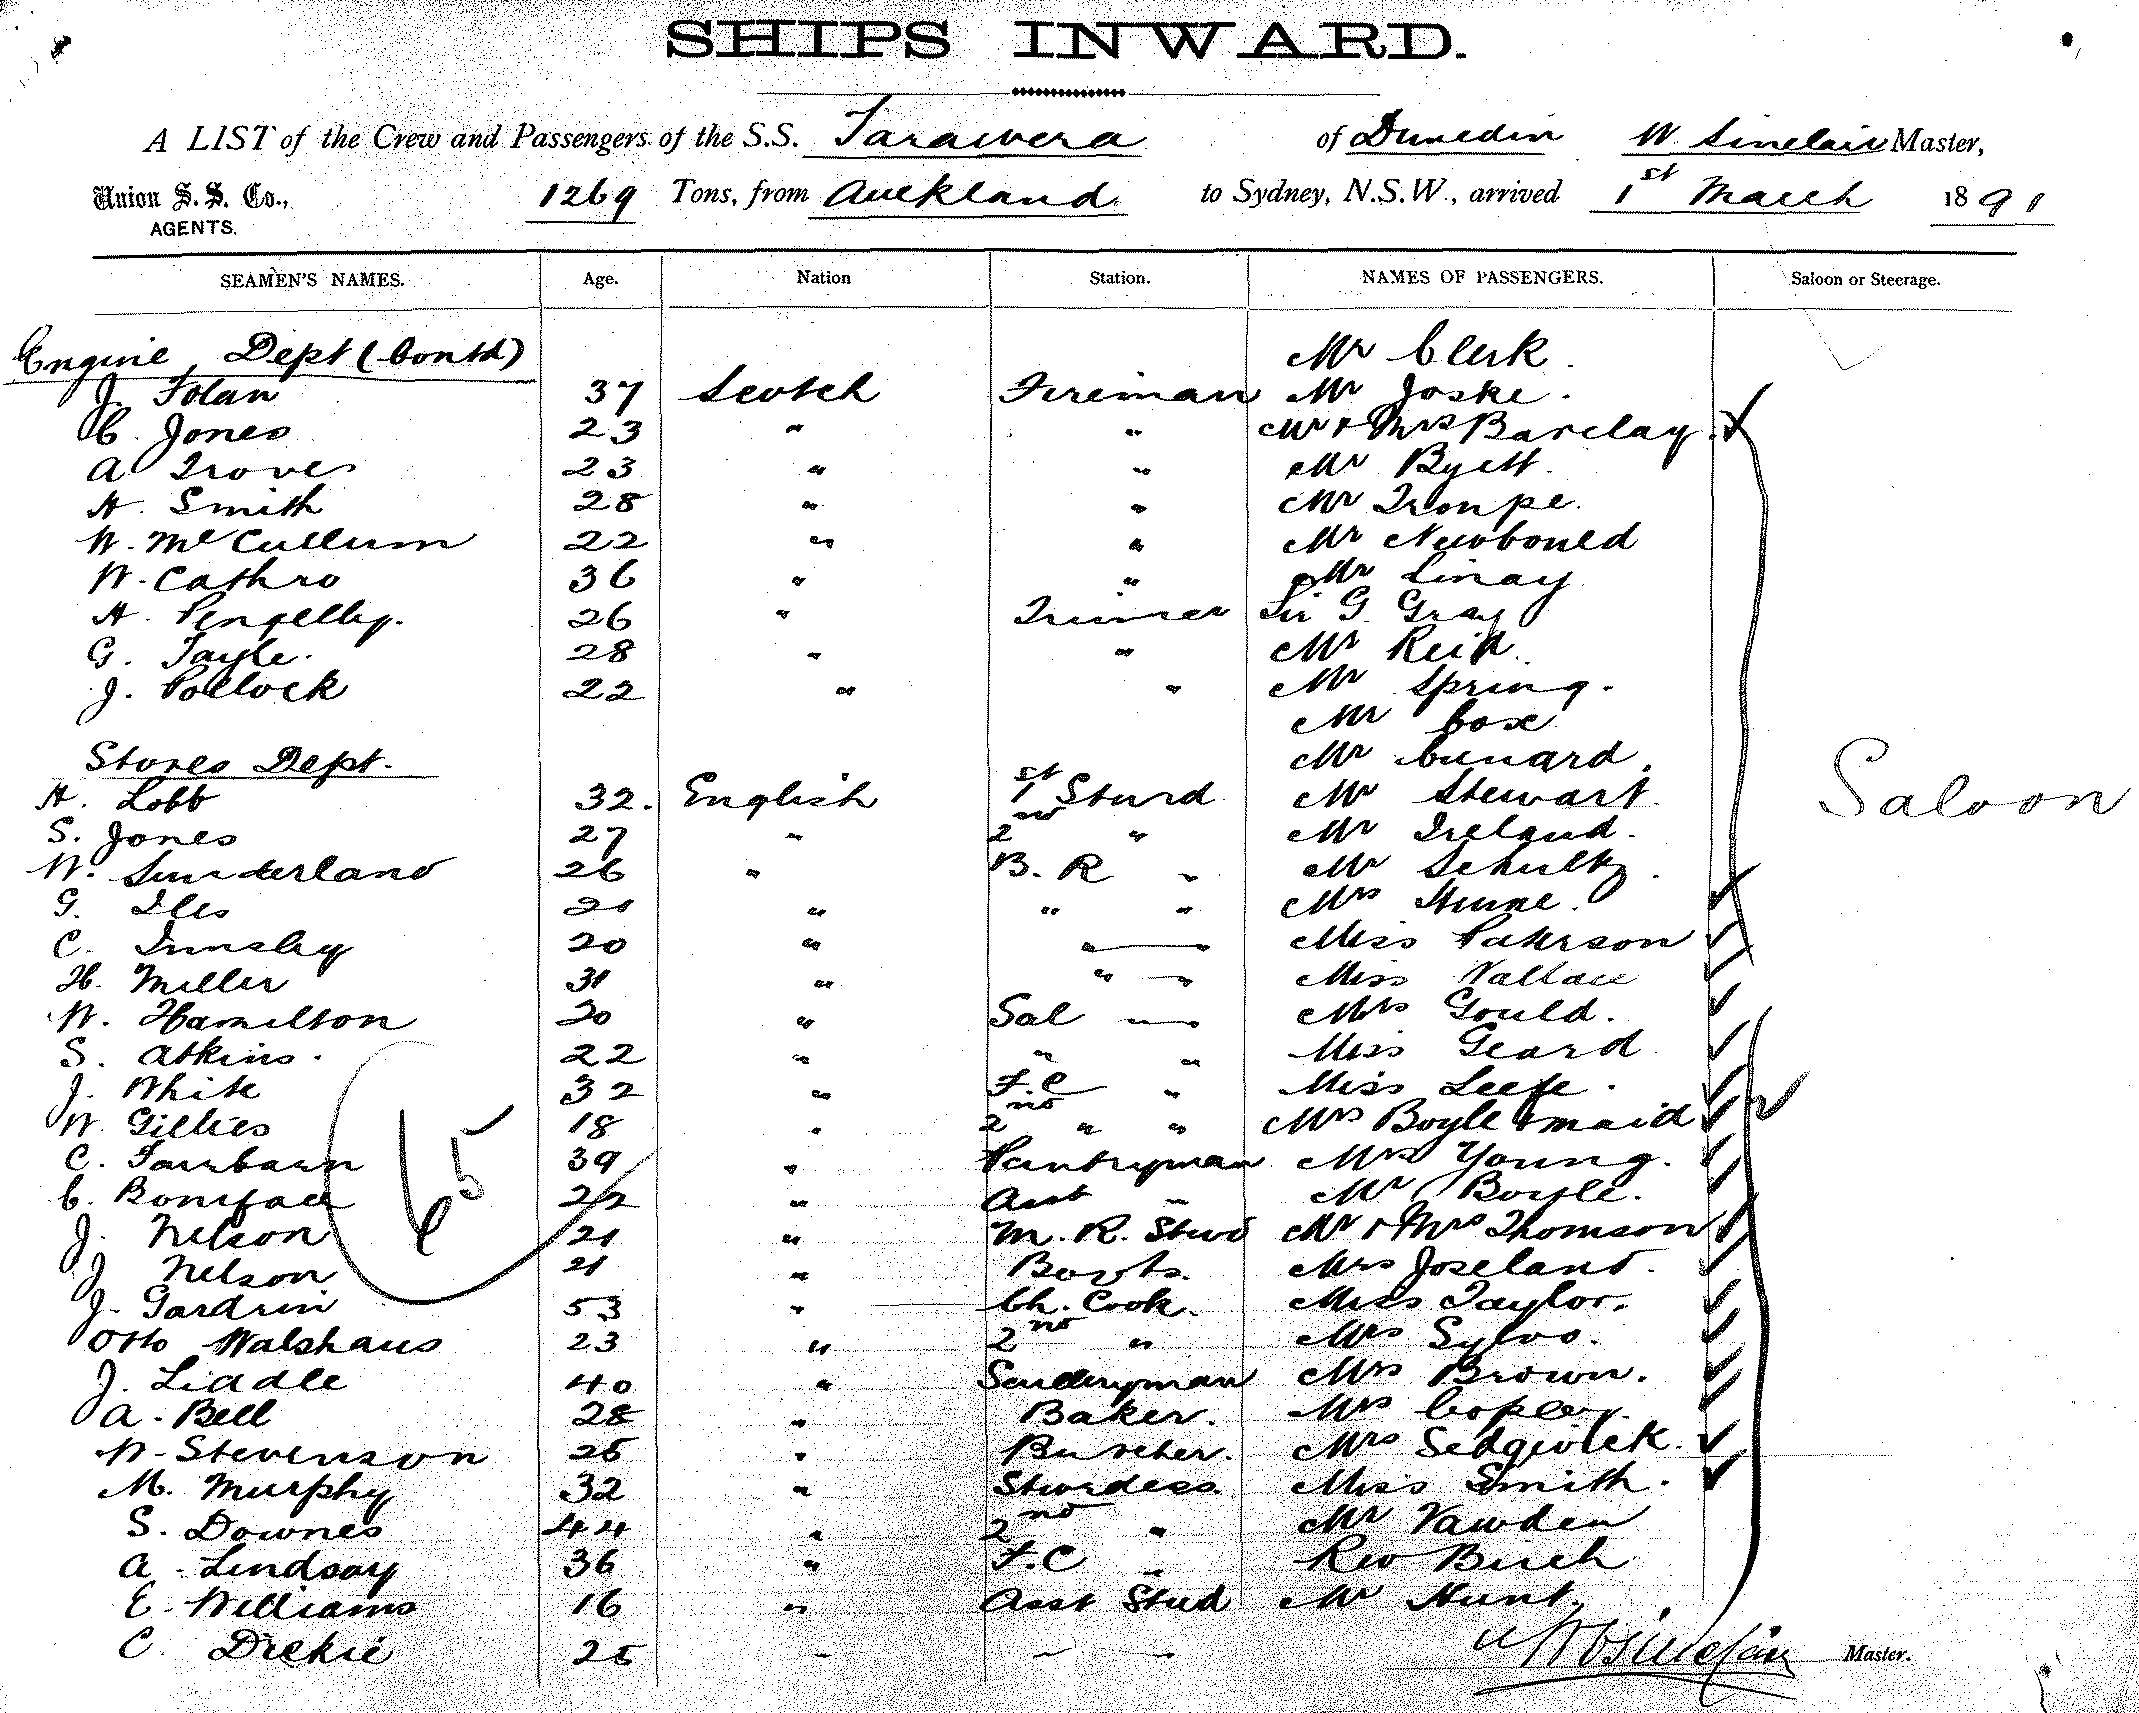 SHIPS INWARD.
A LIST of the Crew and Passengers of the S.S. Tarawera of Dunedin W. Sinclair Master,
Union S. S. Co., AGENTS. 1269 Tons, from Auckland to Sydney, N.S.W., arrived 1st March 1891
SEAMEN'S NAMES. Age. Nation Station. NAMES OF PASSENGERS. Saloon or Steerage.
Engine Dept (Contd) Mr Clerk
J. Folan 37 Scotch Fireman Mr Joske.
C. Jones 23 " " Mr & Mrs Barclay
A Troves 23 " " Mr Byett.
H. Smith 28 " " Mr Tronpe.
W. McCullum 22 " " Mr Newbould
W. Cathro 36 " " Mr Linay
H. Pengelley. 26 " Trimer Sir G. Gray
G. Tayle. 28 " " Mr Reid
J. Pollock 22 " " Mr Spring.
Mr Cox
Stores Dept. Mr Cunard.
H. Lobb 32. English 1st Stwd Mr Stewart
S. Jones 27 " 2nd " Mr Ireland.
W. Sunderland 26 " B. R " Mr Schultz.
G. Iles 21 " " " Mrs Hume.
C. 20 " " Miss Paterson
H. Miller 31 " " " Miss Vallace
W. Hamilton 20 " Sal " Mrs Gould.
S. Atkins. 22 " " " Miss Geard
J. White 32 " F.C " Miss Leefe.
W. Gillies 18 " 2nd " " Mrs Boyle & maid
C. Fairbairn 39 " Pantryman Mrs Young.
C. Boniface 22 " Asst " Mr Boyle.
J. Nelson 21 " M. R. Stwd Mr & Mrs Thomson
J. Nelson 21 " Boots. Mrs Joseland.
J. Gardrin 53 " Ch. Cook. Miss Taylor.
Otto Walshaus 23 " 2nd " Mrs Sylvo.
J. Liddle 40 " Sculleryman Mrs Brown.
A. Bell 28 " Baker. Mrs Copley.
W. Stevenson 25 " Butcher. Mrs Sedgwick.
M. Murphy 32 " Stwrdess Miss Smith.
S. Downes 44 " 2nd " Mr Vawden
A. Lindsay 36 " F.C " Rev Birch
E. Williams 16 " Asst Stwd Mr Hunt.
C. Dickie 25 " " "
Saloon
65
W Sinclair Master.